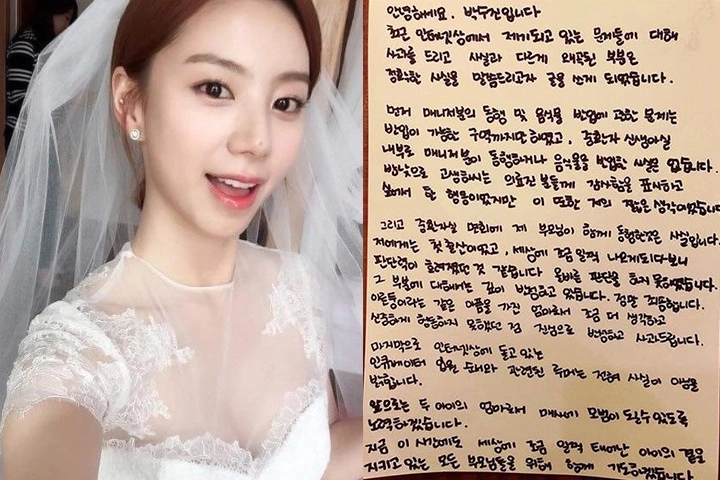 안녕하세요. 박수진입니다
최근 인터넷상에서 제기되고 있는 문제들에 대해
사과를 드리고 사실과 다르게 왜곡된 부분은
정확한 사실을 말씀드리고자 글을 쓰게 되었습니다.
먼저 매니저분의 동행 및 음식물 반입에 관한 문제는
반입이 가능한 구역까지만 하였고, 중환자 신생아실
내부로 매니저분이 동행하거나 음식물을 반입한 사실은 없습니다.
밤낮으로 고생하시는 의료진 분들께 감사함을 표시하고
싶어서 한 행동이었지만 이 또한 저의 짧은 생각이었습니다
그리고 중환자실 면회에 제 부모님이 함께 동행한것은 사실입니다.
저에게는 첫 출산이었고, 세상에 조금 일찍 나오게되다보니
판단력이 흐려졌던 것 같습니다 올바른 판단을 하지 못하였습니다.
그 부분에 대해서는 깊이 반성하고 있습니다. 정말 죄송합니다.
이른둥이라는 같은 아픔을 가진 엄마로서 조금 더 생각하고
신중하게 행동하지 못했던 점 진심으로 반성하고 사과드립니다.
마지막으로 인터넷상에 돌고 있는
인큐베이터 입원 순서와 관련된 루머는 전혀 사실이 아님을
밝힙니다.
앞으로는 두 아이의 엄마로서 매사에 모범이 될수 있도록
노력하겠습니다.
지금 이 시간에도 세상에 조금 일찍 태어난 아이의 곁을
지키고 있는 모든 부모님들을 위하여 함께 기도하겠습니다